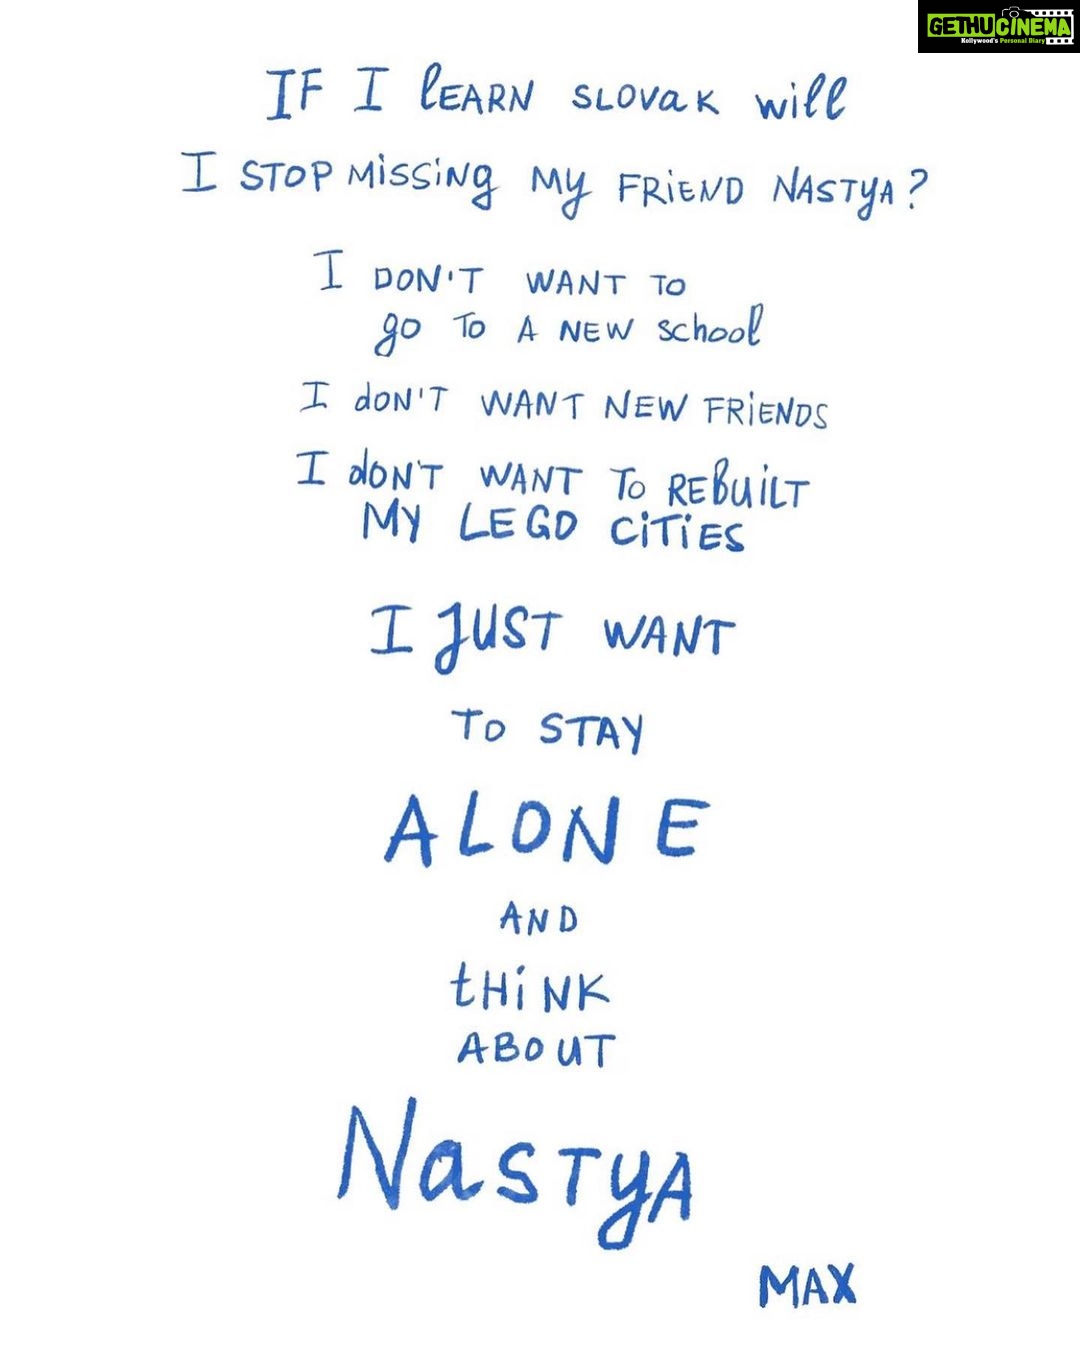 GETHUCINEMA
Kollywood's Personal Diary
IF I lEARN SLOVaK will
I STOP MiSSiNg My FRiEND NASTyA?
I DON'T WANT TO
go TO A NEW School
I doN'T WANT NEW FRiENDS
I doN'T WANT To REBuiLT
MY LEGO CiTiES
I JUST WANT
TO STAY
ALONE
AND
tHiNK
ABOuT
NaSTyA
MAX